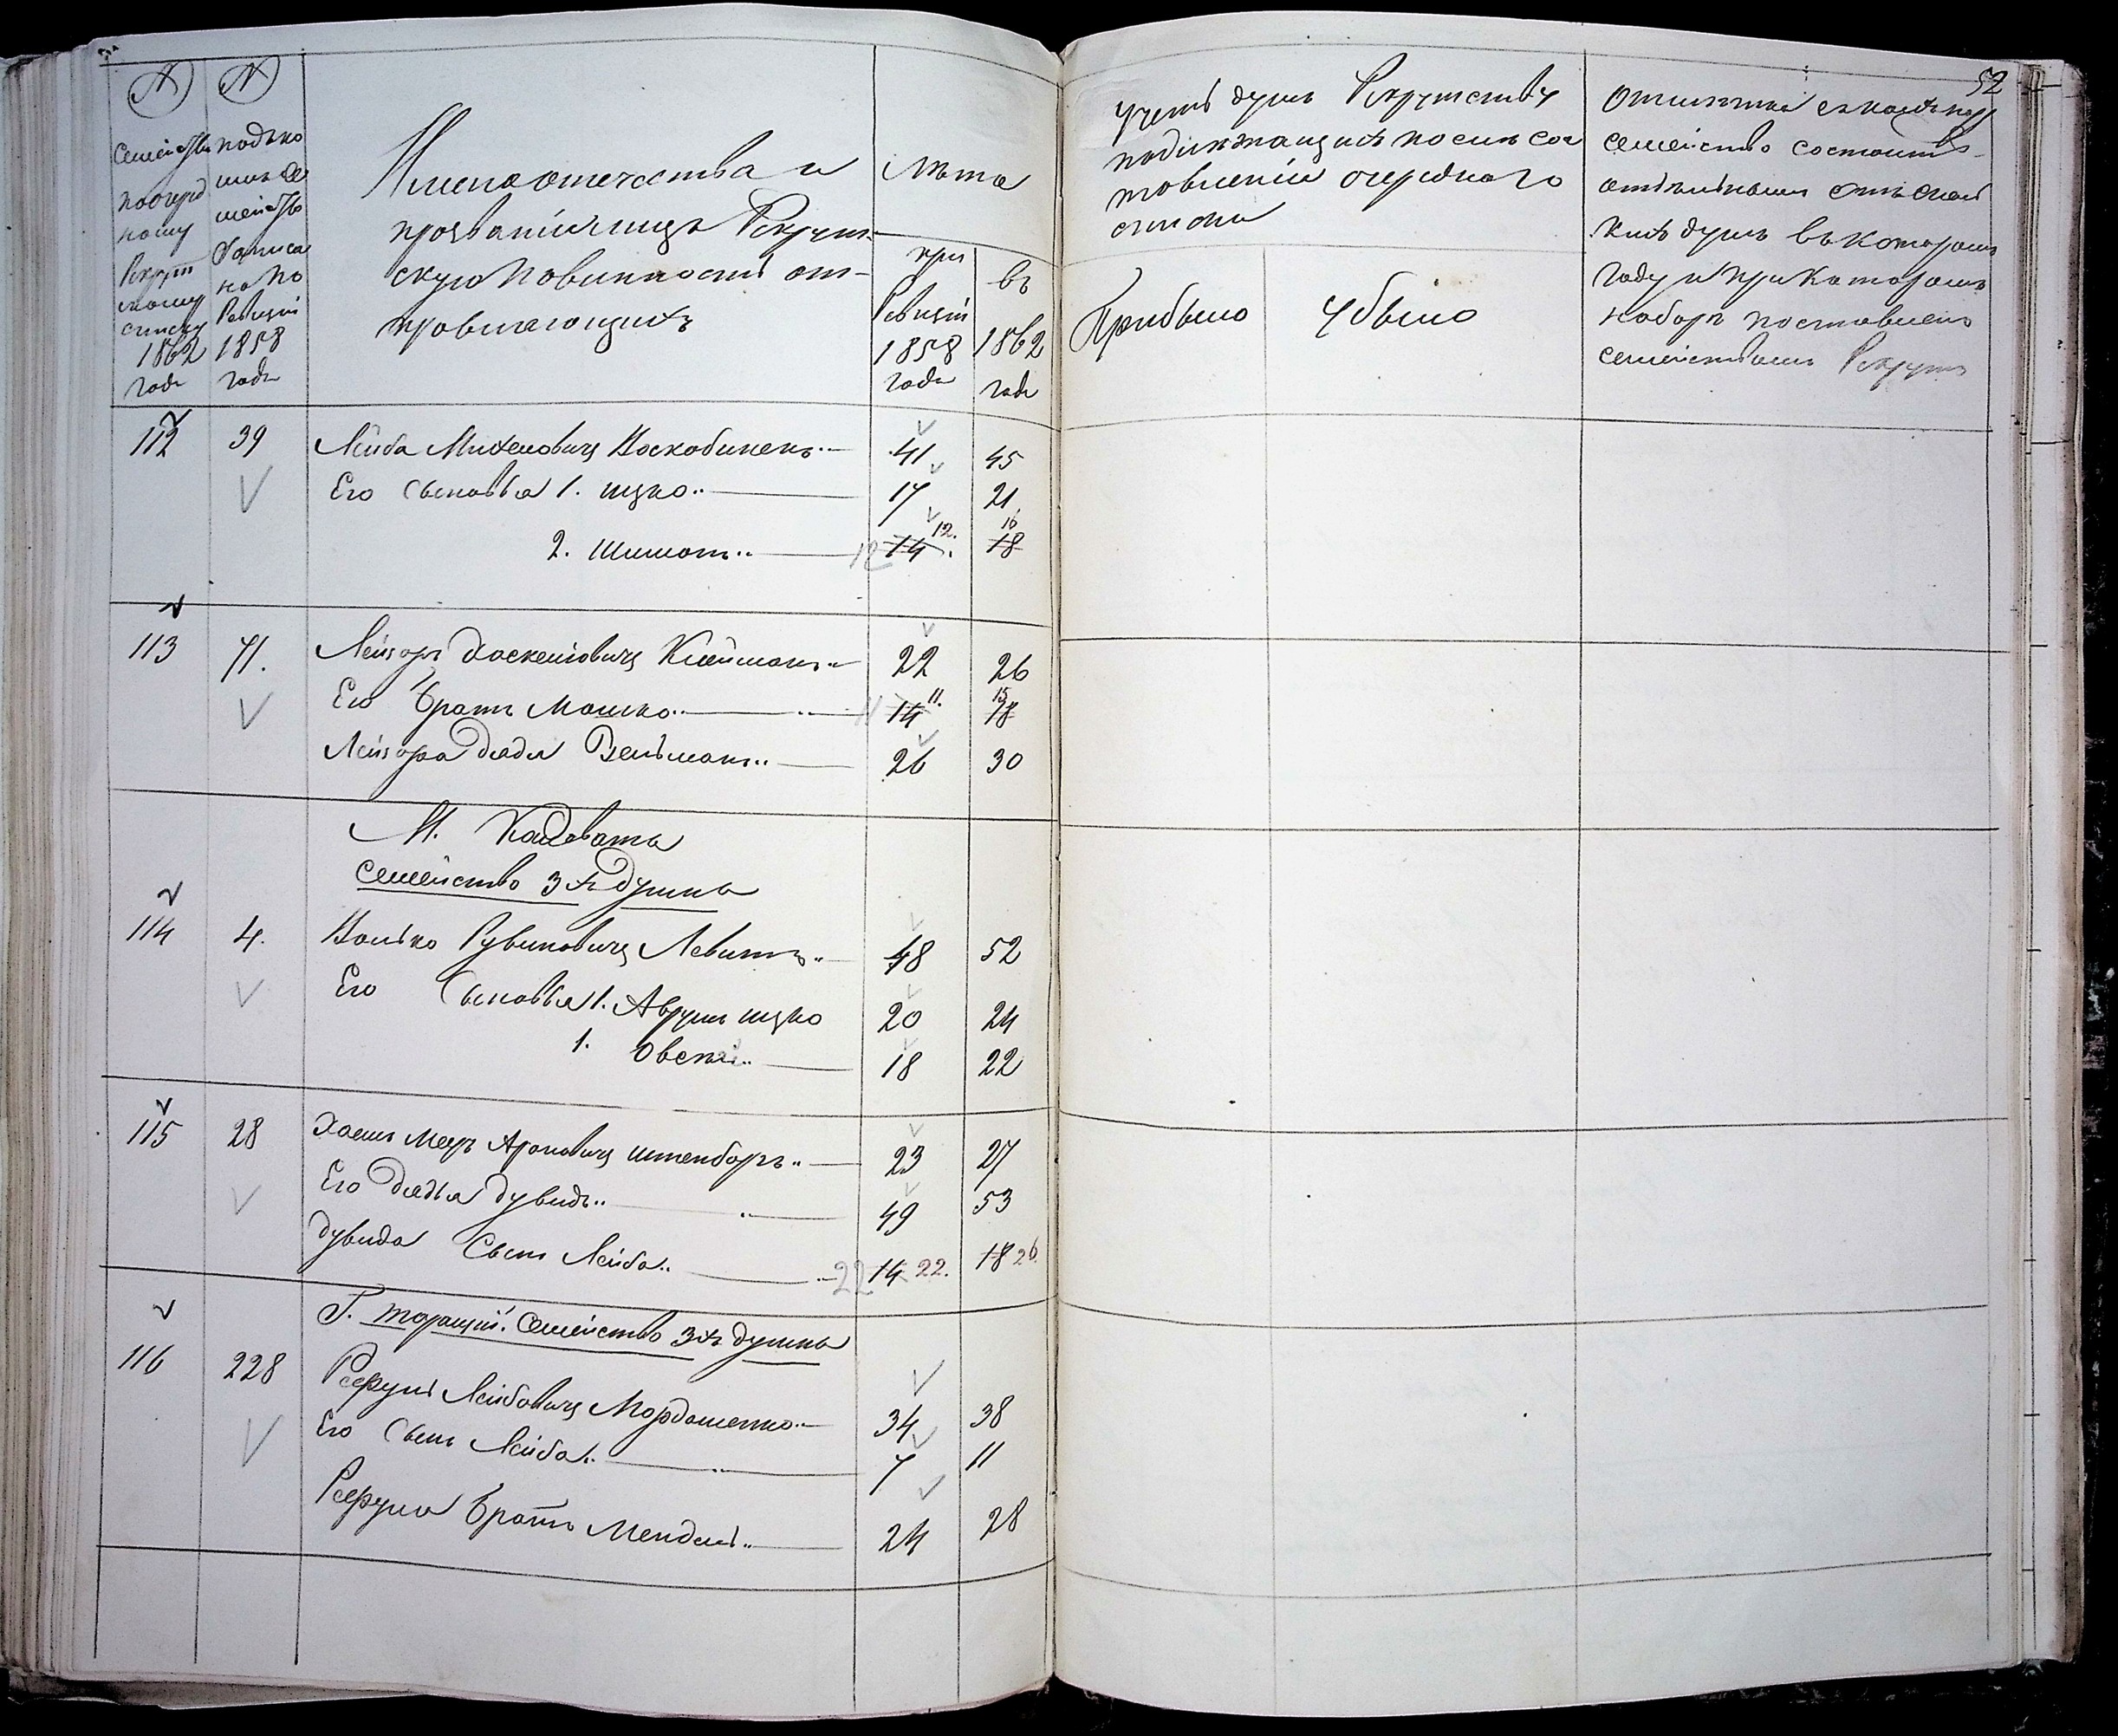 52
N
Семейства
по очеред
ному
Рекрут
скому
списку
1862
года
N
подъко
имъ се
мейство
Записа
но по
Ревизiи
1858
года
Имена отечества и
прозванiя лицъ Рекрут
скую повинность от-
правляющихъ
Лѣта
при
Ревизiи
1858
года
въ
1862
годе
Учетъ душъ Рекрутству
подлежащихъ по симъ сос
товленiи очереднаго
списки
Прибыло
Убыло
Отмѣтка сколькихъ
семейство состоитъ
душъ въ которомъ
году и при которомъ
наборѣ поставленъ
семействомъ Рекрутъ
112 39 Лейба Михелевичъ Воскобиникъ 41 45
Его Сыновья 1. Ицко 17 21
2. Шимон 12 14 12. 18 16
113 71. Лейзоръ Хаскелiовичъ Клейманъ 22 26
Его братъ Мошко 11 14 11. 18 15
Лейзора дядя Вельманъ 26 30
М. Кадовата
Семейство 3хъ душна
114 4. Волько Рувиновичъ Левитъ 48 52
Его Сыновья 1. Аврумъ Ицко 20 24
1. Овсей 18 22
115 28 Хаимъ Мееръ Ароновичъ Штенборъ 23 27
Его дядья Дувидъ 49 53
Дувида Сынъ Лейба 22 14 22. 18 26.
Г. Торащи. Семейство 3хъ душна
116 228 Рефулъ Лейбовичъ Мордошенко 34 38
Его Сынъ Лейба 7 11
Рефула братъ Мендель 24 28